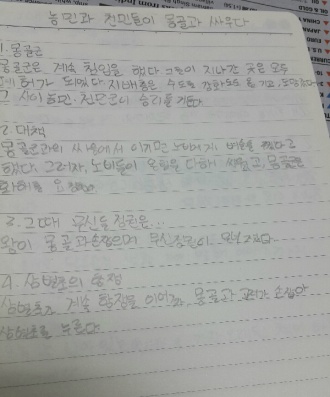 농민과 천민들이 몽골과 싸우다
1. 몽골군
몽골군은 계속 침입을 했다 그들이 지나간 곳은 모두
폐허가 되었다 지배층은 수도를 강화도로 옮기고,
그 사이 농민·천민군이 승리를 거둔다
2. 대책
몽골군과의 싸움에서 이기면 노비에게 벼슬을 준다고
했다. 그러자, 노비들이 온 힘을 다해 싸웠고, 몽골군은
화해를 요청했다
3. 그때 무신들 정권은..
왕이 몽골과 손잡으며 무신정권이 무너졌다
4. 삼별초의 항쟁
삼별초가 계속 항쟁을 이어가, 몽골과 고려가 손잡아
삼별초를 누른다
CHINA
JAPAN
EURO